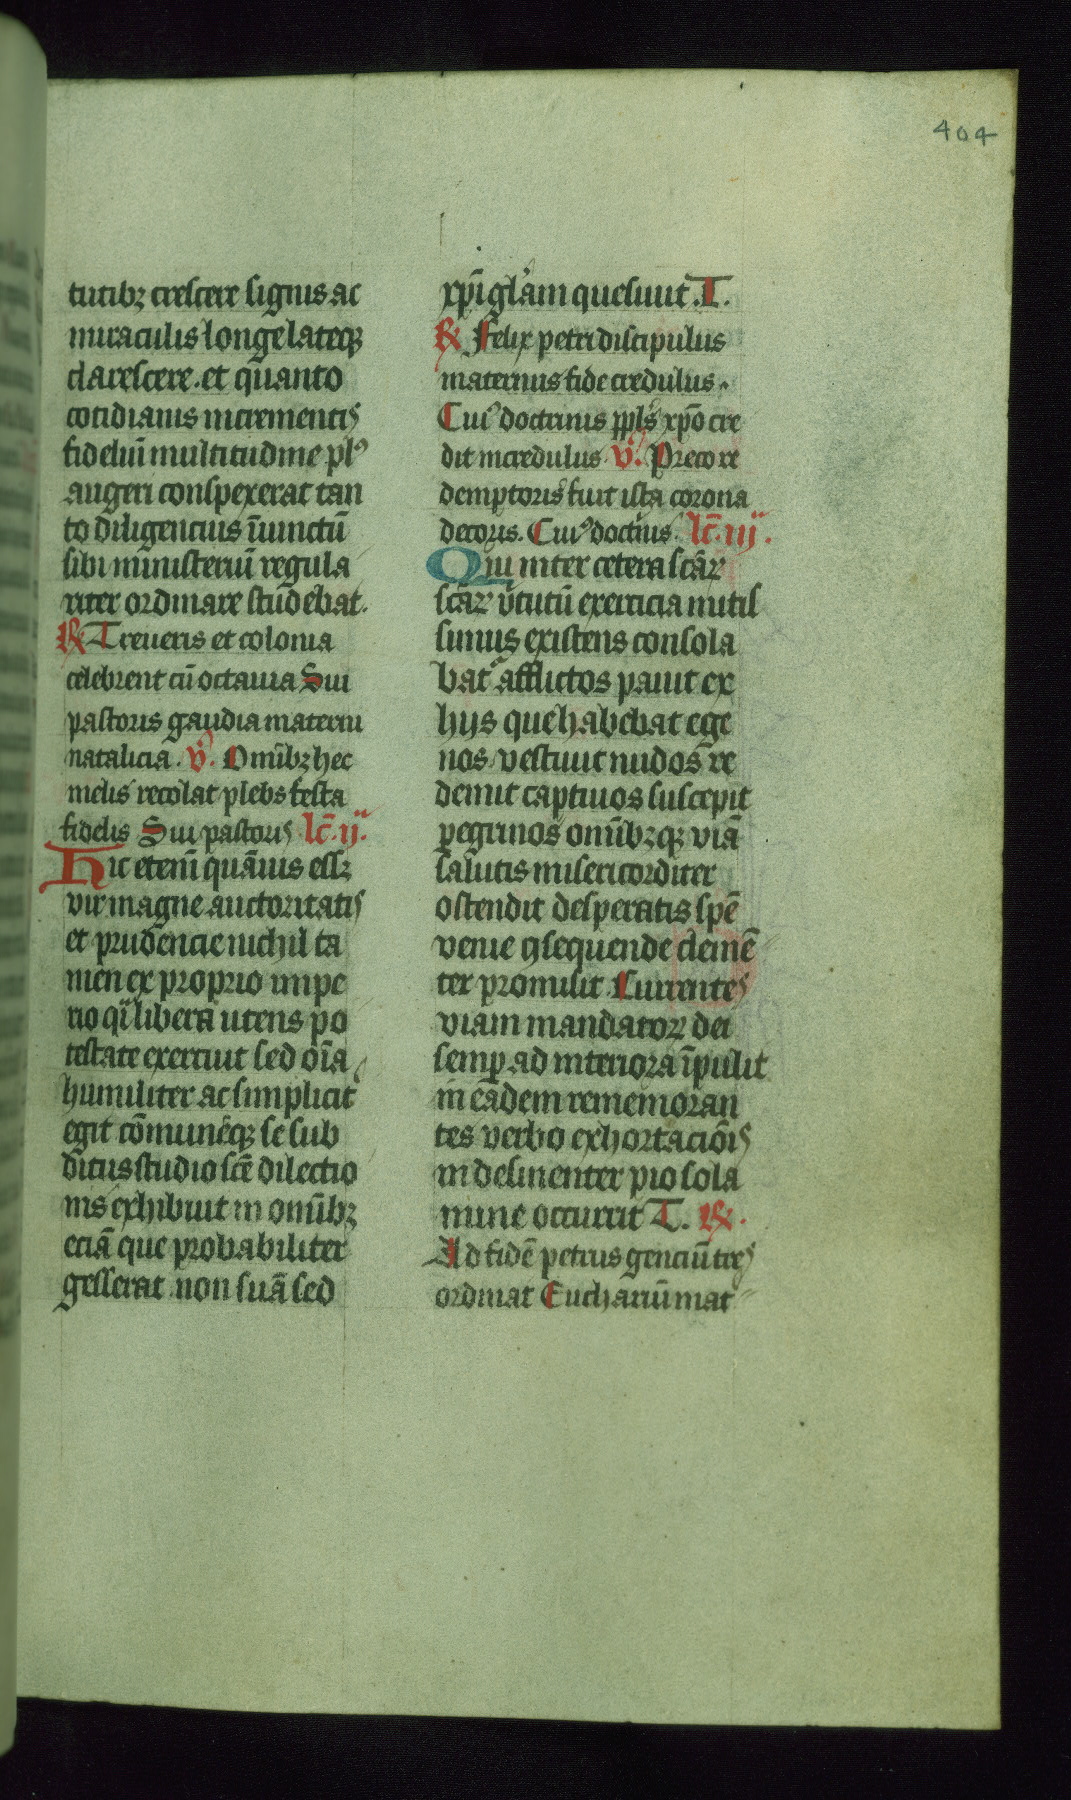 404
tutibꝫ crescere signis ac
miraculis longe lateqꝫ
clarescere. et quanto
cotidianis incrementis
fideliū multitudine plꝰ
augeri conspexerat tan
to diligencius īiunctū
sibi ministeriū regula
riter ordinare studebat.
℟ Treueris et colonia
celebrent cū octauia Sui
pastoris gaudia materni
natalicia. ℣. Omībꝫ hec
melis recolat plebs festa
fidelis Sui pastoris lc̄. ij.
Hic etenī quāuis essꝫ
vir magne auctoritatis
et prudencie nichil ta
men ex proprio impe
rio qͥ libera utens po
testate exercuit sed oīa
humiliter ac simplicit᷑
egit cōmuneqꝫ se sub
ditus studio scē dilectio
nis exhibuit in omībꝫ
eciā que probabiliter
gesserat non suā sed
xp̄i gl̄am quesiuit T.
℟ Felix petri discipulus
maternus fide credulus.
Cuiꝰ doctrinis ppl̄s xp̄o cre
dit incredulus ℣. Preco re
demptoris fuit ista corona
decoris. Cuiꝰ doctͥnis. lc̄. iij.
Qui inter cetera scāꝝ
scāꝝ v̾tutū exercicia mitis
simus existens consola
batͬ afflictos pauit ex
hijs que habebat ege
nos vestiuit nudos re
demit captiuos suscepit
ꝑegrinos omībꝫqꝫ viā
salutis misericorditer
ostendit desperatis spē
venie ꝯsequende clemē
ter promisit Currentes
viam mandatoꝝ dei
semꝑ ad interiora īpulit
in eadem rememoran
tes verbo exhortaciōis
indesinenter pio sola
mine occurrit T. ℟.
Ad fidē petrus genciū tres
ordinat Euchariū mat